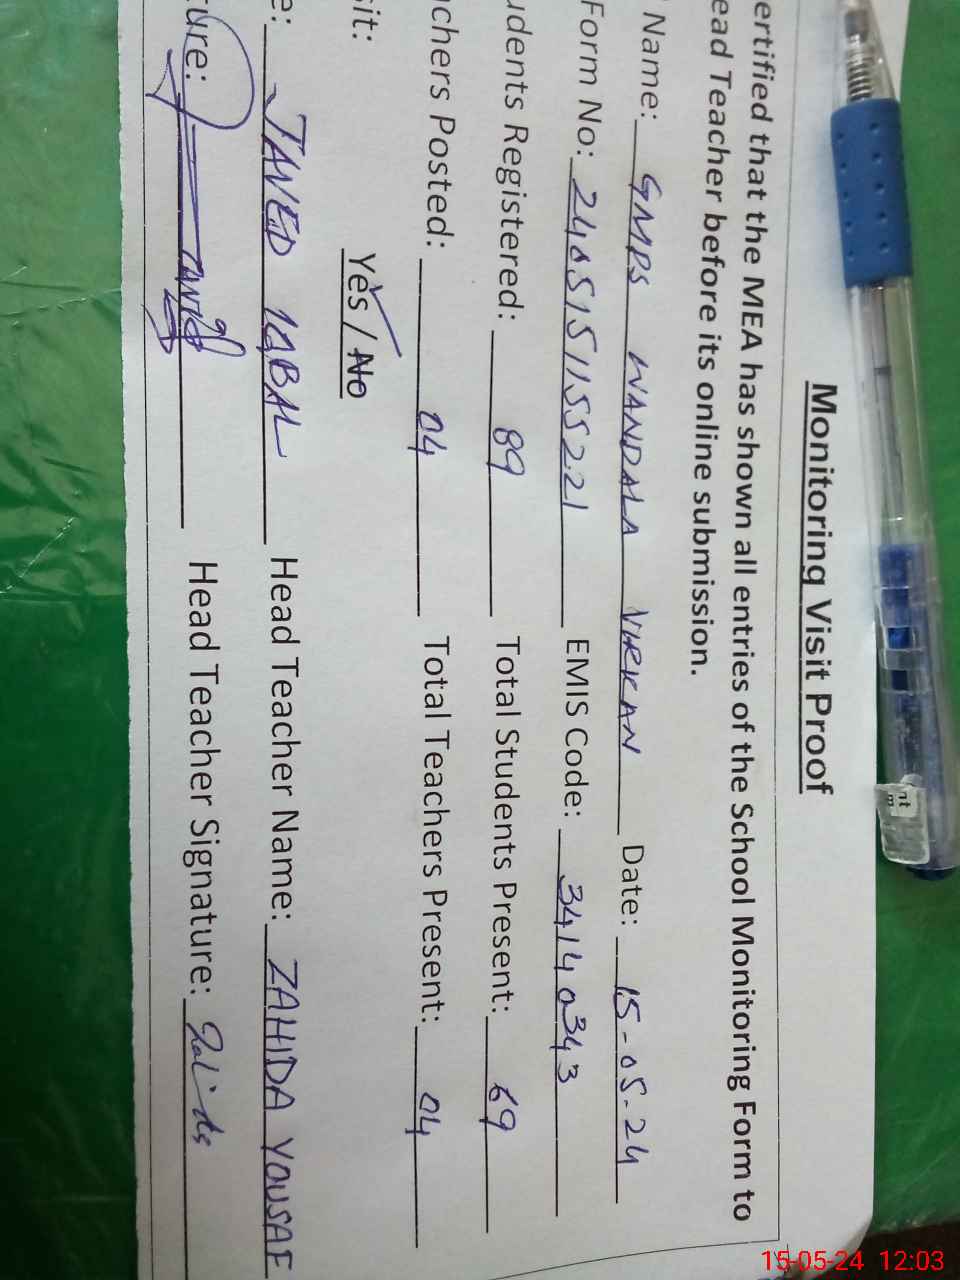 Monitoring Visit Proof
ertified that the MEA has shown all entries of the School Monitoring Form to
ead Teacher before its online submission.
Name: GMPS WANDALA VIRKAN Date: 15-05-24
Form No: 2405151155221 EMIS Code: 34140343
udents Registered: 89 Total Students Present: 69
chers Posted: 04 Total Teachers Present: 04
sit: Yes / No
e: JAVED IQBAL Head Teacher Name: ZAHIDA YOUSAF
ture: Javed Head Teacher Signature: Zahida
nt
m
15-05-24 12:03